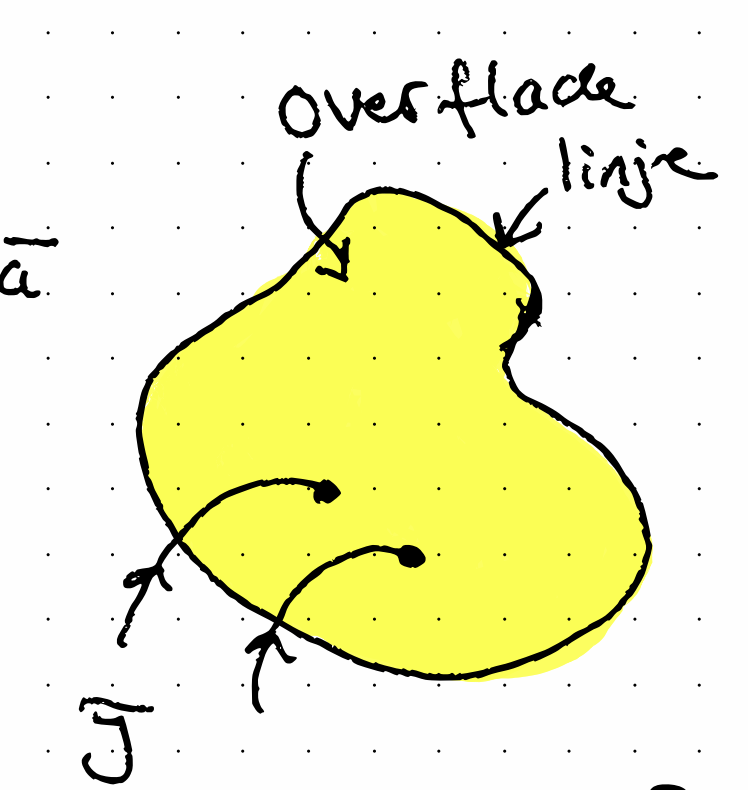 overflade
linje
a̅
J̅